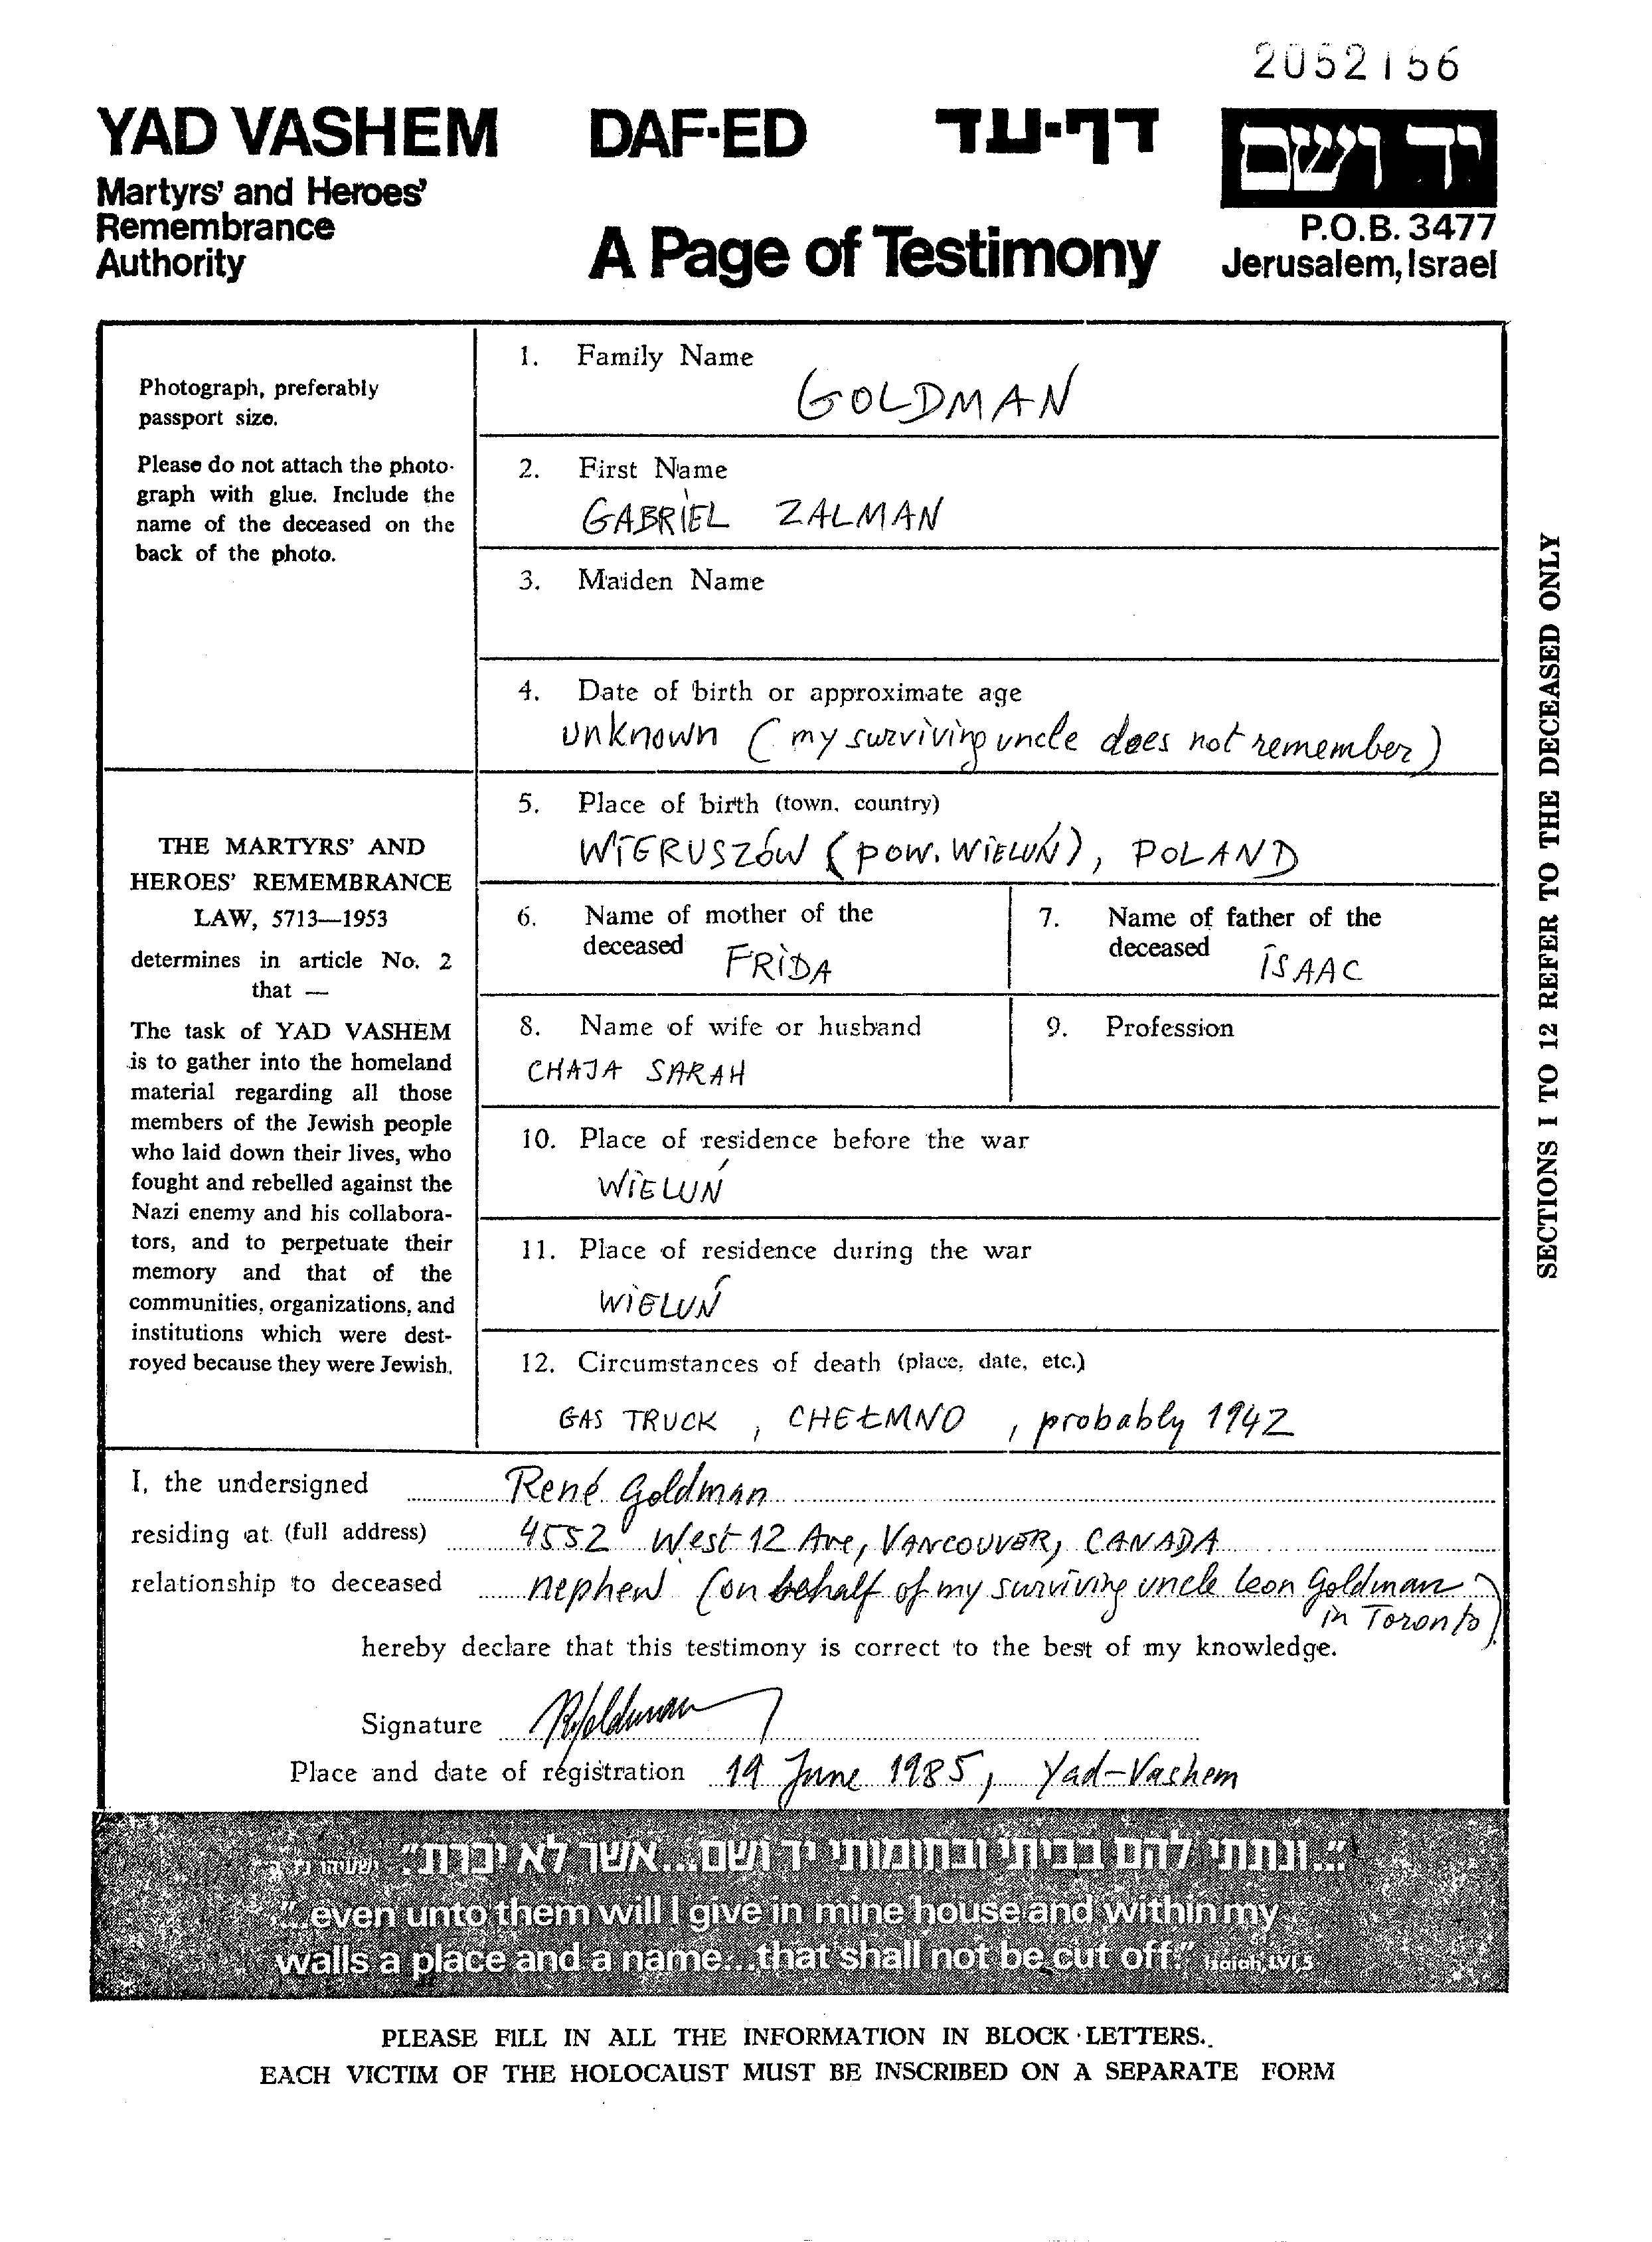 2052156
YAD VASHEM
Martyrs' and Heroes'
Remembrance
Authority
DAF-ED
דף-עד
A Page of Testimony
יד ושם
P.O.B. 3477
Jerusalem, Israel
Photograph, preferably
passport size.
Please do not attach the photo-
graph with glue. Include the
name of the deceased on the
back of the photo.
THE MARTYRS' AND
HEROES' REMEMBRANCE
LAW, 5713—1953
determines in article No. 2
that —
The task of YAD VASHEM
is to gather into the homeland
material regarding all those
members of the Jewish people
who laid down their lives, who
fought and rebelled against the
Nazi enemy and his collabora-
tors, and to perpetuate their
memory and that of the
communities, organizations, and
institutions which were dest-
royed because they were Jewish.
1. Family Name
GOLDMAN
2. First Name
GABRIEL ZALMAN
3. Maiden Name
4. Date of birth or approximate age
unknown (my surviving uncle does not remember)
5. Place of birth (town, country)
WIERUSZÓW (pow. WIELUŃ), POLAND
6. Name of mother of the
deceased FRIDA
7. Name of father of the
deceased ISAAC
8. Name of wife or husband
CHAJA SARAH
9. Profession
10. Place of residence before the war
WIELUŃ
11. Place of residence during the war
WIELUŃ
12. Circumstances of death (place, date, etc.)
GAS TRUCK, CHEŁMNO, probably 1942
SECTIONS 1 TO 12 REFER TO THE DECEASED ONLY
I, the undersigned René Goldman
residing at (full address) 4552 West 12 Ave, VANCOUVER, CANADA
relationship to deceased nephew (on behalf of my surviving uncle Leon Goldman
in Toronto)
hereby declare that this testimony is correct to the best of my knowledge.
Signature RGoldman
Place and date of registration 19 June 1985, Yad-Vashem
"...ונתתי להם בביתי ובחומותי יד ושם...אשר לא יכרת." ישעיהו נו, ה
"...even unto them will I give in mine house and within my
walls a place and a name...that shall not be cut off." Isaiah, LVI,5
PLEASE FILL IN ALL THE INFORMATION IN BLOCK LETTERS.
EACH VICTIM OF THE HOLOCAUST MUST BE INSCRIBED ON A SEPARATE FORM